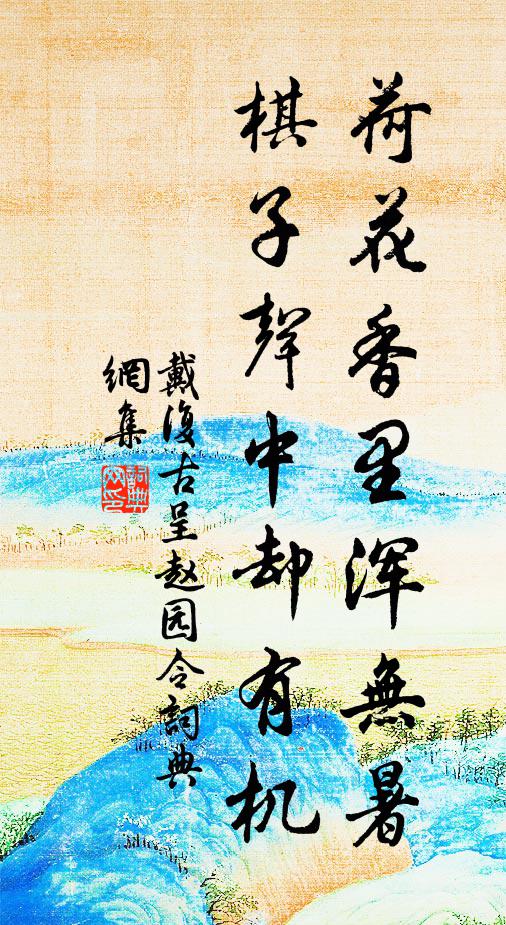 荷花香里浑無暑
棋子聲中却有机
戴復古呈赵园令詞典
網集